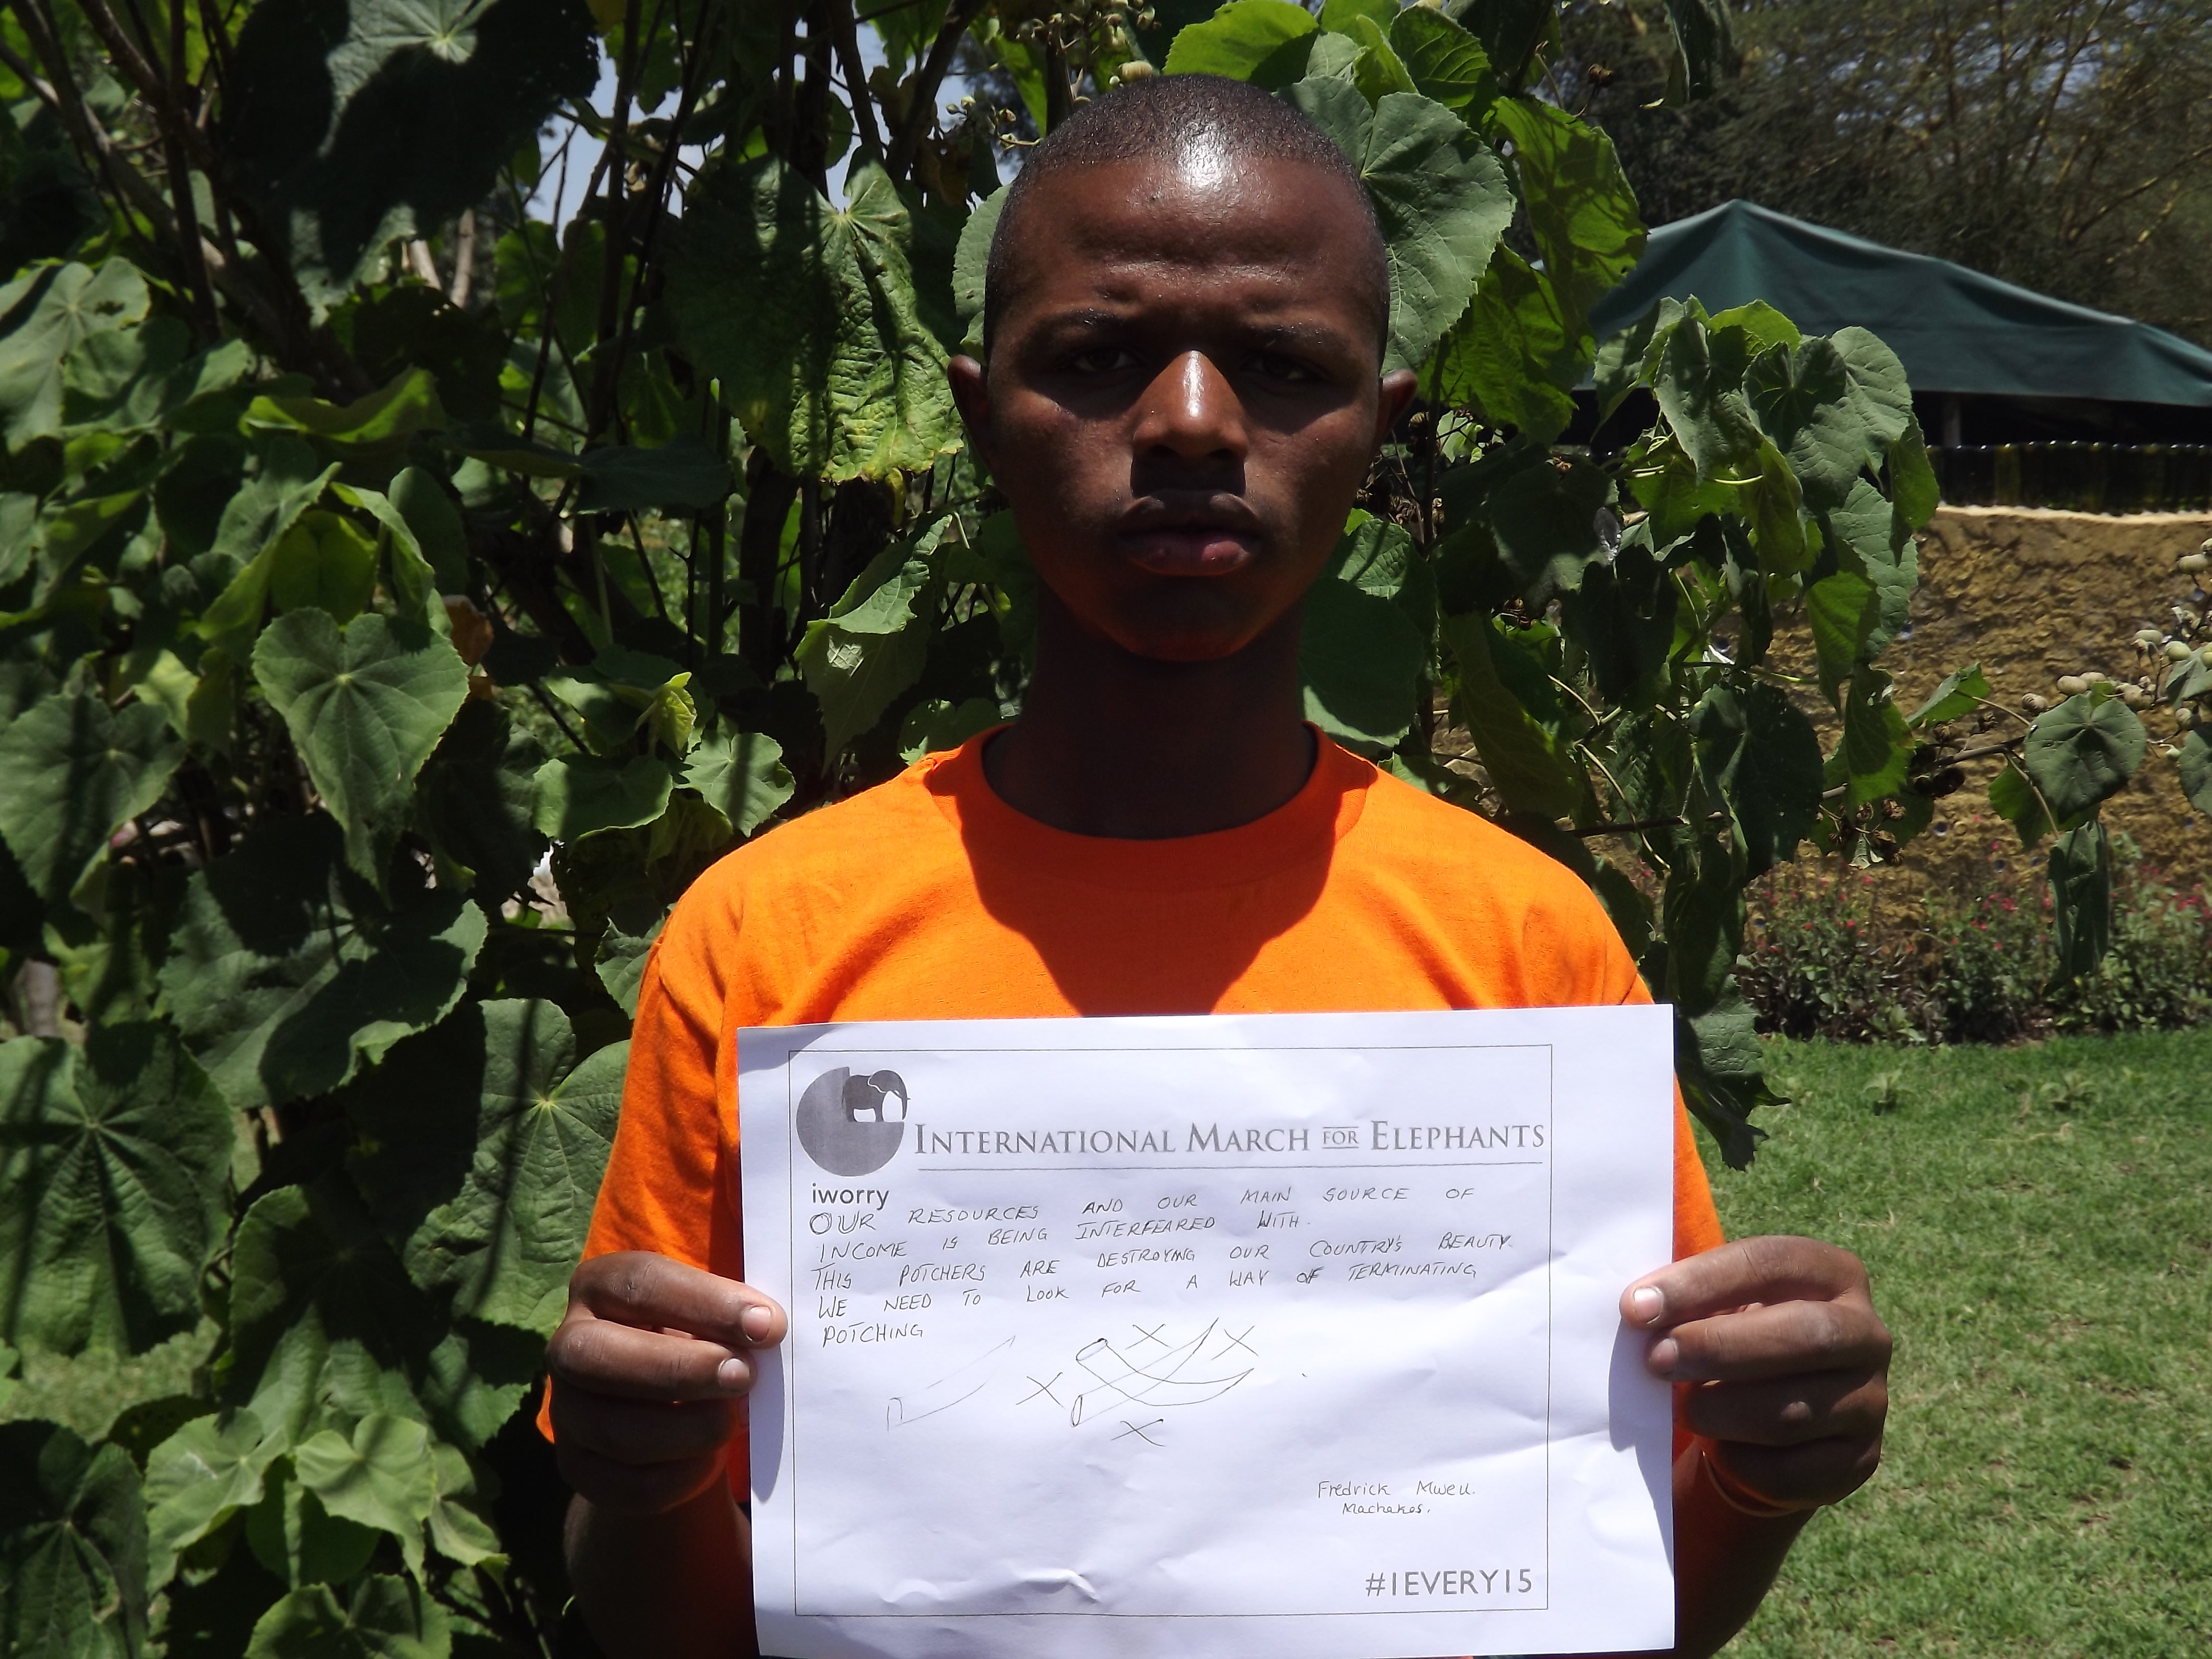 INTERNATIONAL MARCH FOR ELEPHANTS
iworry
OUR RESOURCES AND OUR MAIN SOURCE OF
INCOME IS BEING INTERFEARED WITH.
THIS POTCHERS ARE DESTROYING OUR COUNTRY'S BEAUTY.
WE NEED TO LOOK FOR A WAY OF TERMINATING
POTCHING
Fredrick Mweu.
Machakos.
#1EVERY15